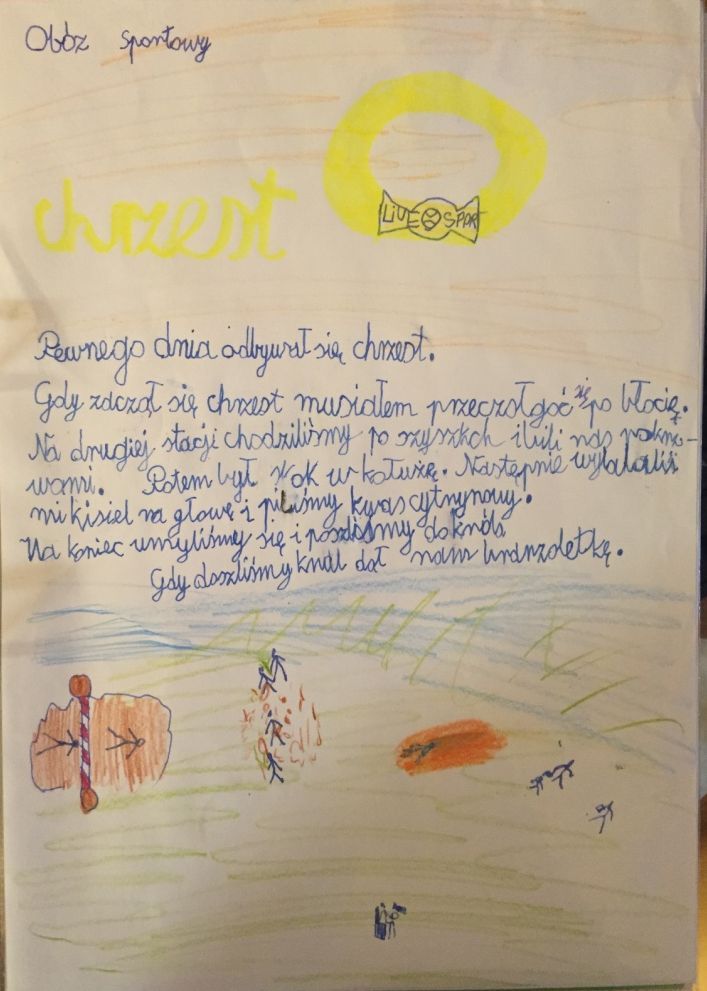 Obóz sportowy
LIVE SPORT
chrzest
Pewnego dnia odbywał się chrzest.
Gdy zaczął się chrzest musiałem przeczołgać się po błocię.
Na drugiej stacji chodziliśmy po szyszkch i bili nas pokrzy-
wami. Potem był skok w kałużę. Następnie wylalali
mi kisiel na głowę i piliśmy kwas cytrynowy.
Na koniec umyliśmy się i poszliśmy do króla
Gdy doszliśmy król dał nam branzoletkę.